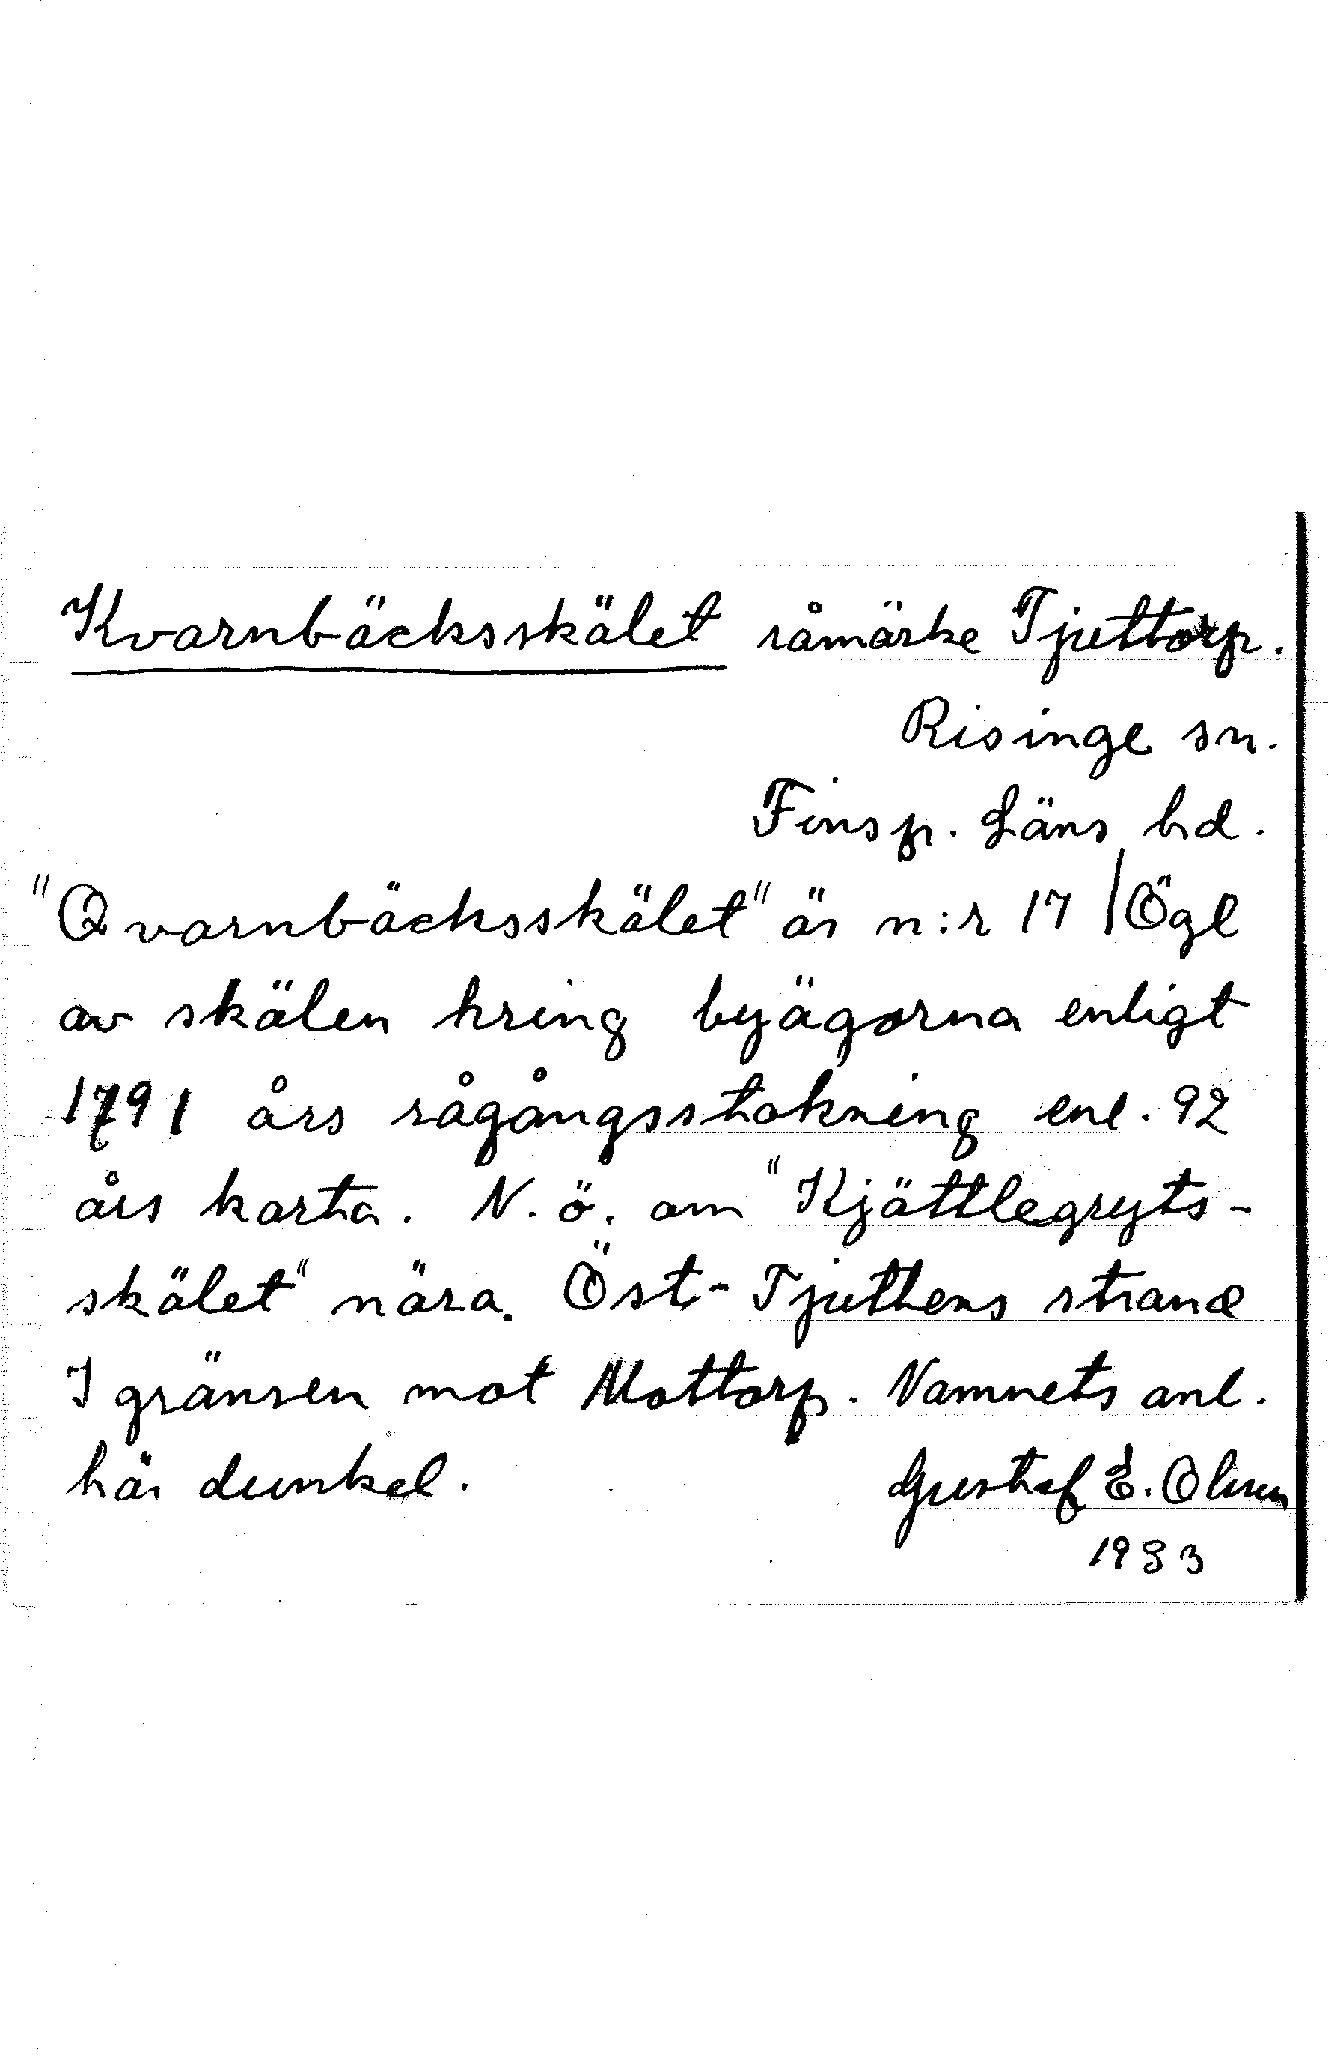 Kvarnbäcksskälet råmärke Tjuttorp.
Risinge sn.
Finsp. Läns hd.
"Qvarnbäcksskälet" är n:r 17 / Ögl
av skälen kring byägorna enligt
1791 års rågångsstakning enl. 92
års karta. N.ö. om "Kjättlegryts-
skälet" nära. Öst-Tjuttens strand
I gränsen mot Mottorp. Namnets anl.
här dunkel.
Gustaf E. Olsson
1983